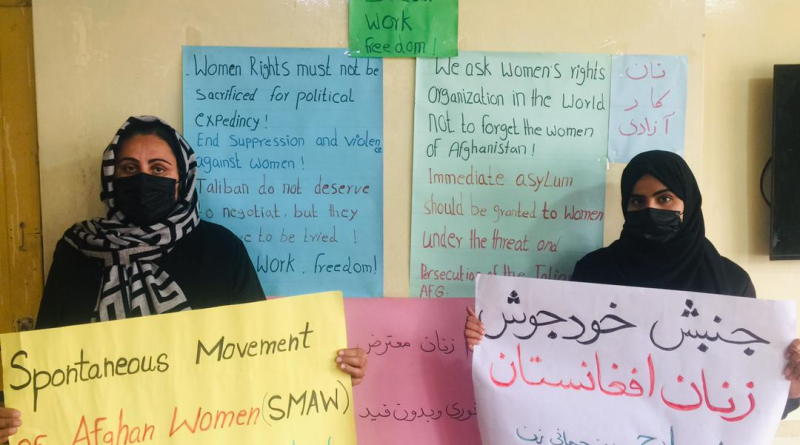 work
freedom!
Women Rights must not be
sacrificed for political
expedincy!
End Suppression and Violence
against women!
Taliban do not deserve
to negotiat, but they
to be tried!
work, freedom!
We ask women's rights
Organization in the World
NOT to forget the women
of Afghanistan!
Immediate asylum
should be granted to Women
under the threat and
Persecution of the Taliban
AFG.
نان
کار
آزادی
Spontaneous Movement
of Afghan Women (SMAW)
زنان معترض
فوری وبدون قید
جنبش خودجوش
زنان افغانستان